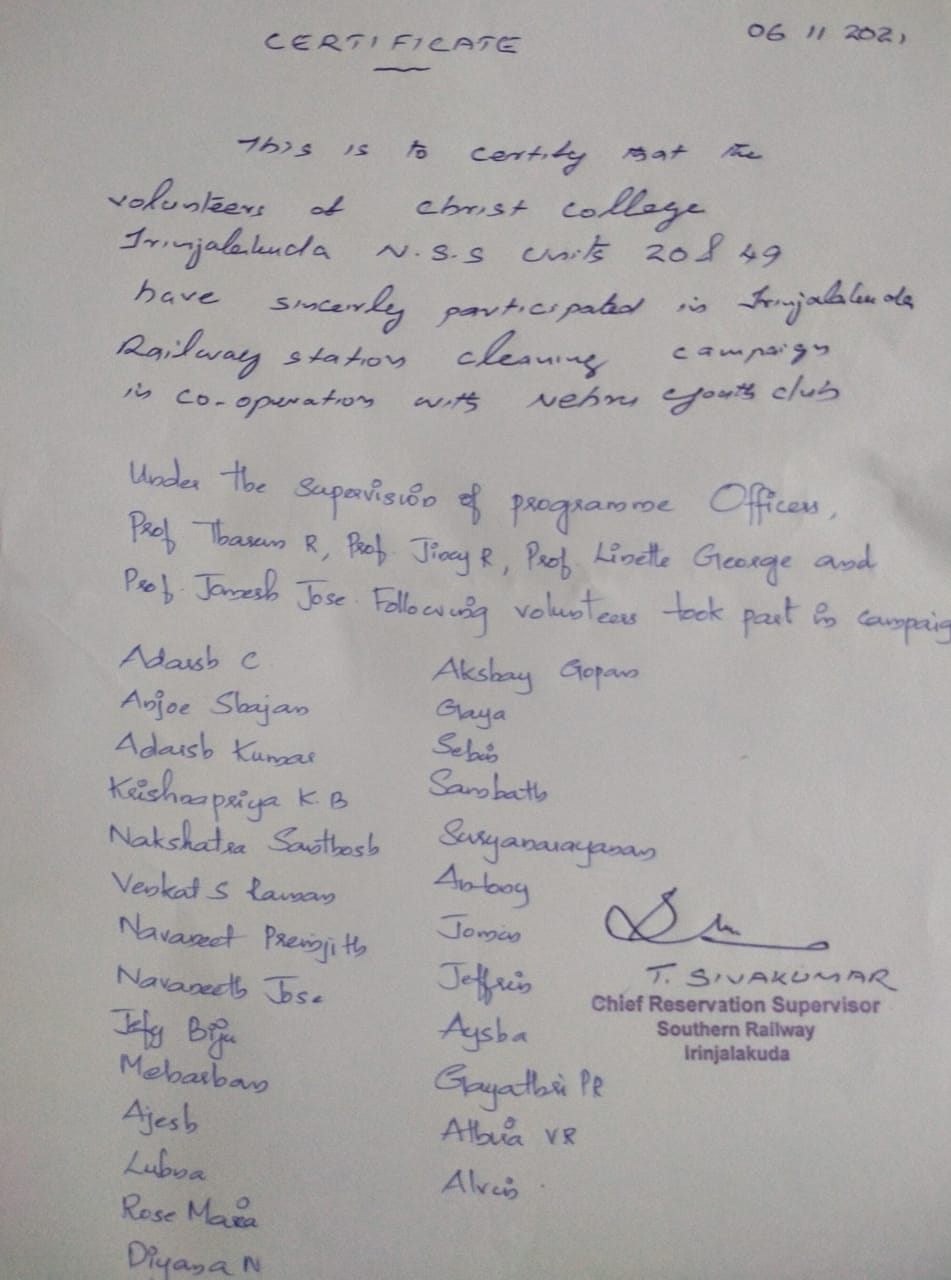 CERTIFICATE
06 11 2021
This is to certify that the
volunteers of Christ College
Irinjalakuda N.S.S Units 20 & 49
have sincerly participated in Irinjalakuda
Railway station cleaning campaign
in co-operation with Nehru Youth club
Under the supervision of programme Officers,
Prof Tharsen R, Prof. Jincy R, Prof. Linette George and
Prof. Jomesh Jose. Following volunteers took part in campaig
Adarsh C
Anjoe Shajan
Adarsh Kumar
Krishnapriya K.B
Nakshatra Santhosh
Venkat S Raman
Navaneet Premjith
Navaneeth Jose
Jefy Biju
Meharban
Ajesh
Lubna
Rose Maria
Diyana N
Akshay Gopan
Gaya
Sebin
Sambath
Suryanarayanan
Antony
Jomin
Jeffrin
Aysha
Gayathri PR
Athira VR
Alvin
T. SIVAKUMAR
Chief Reservation Supervisor
Southern Railway
Irinjalakuda